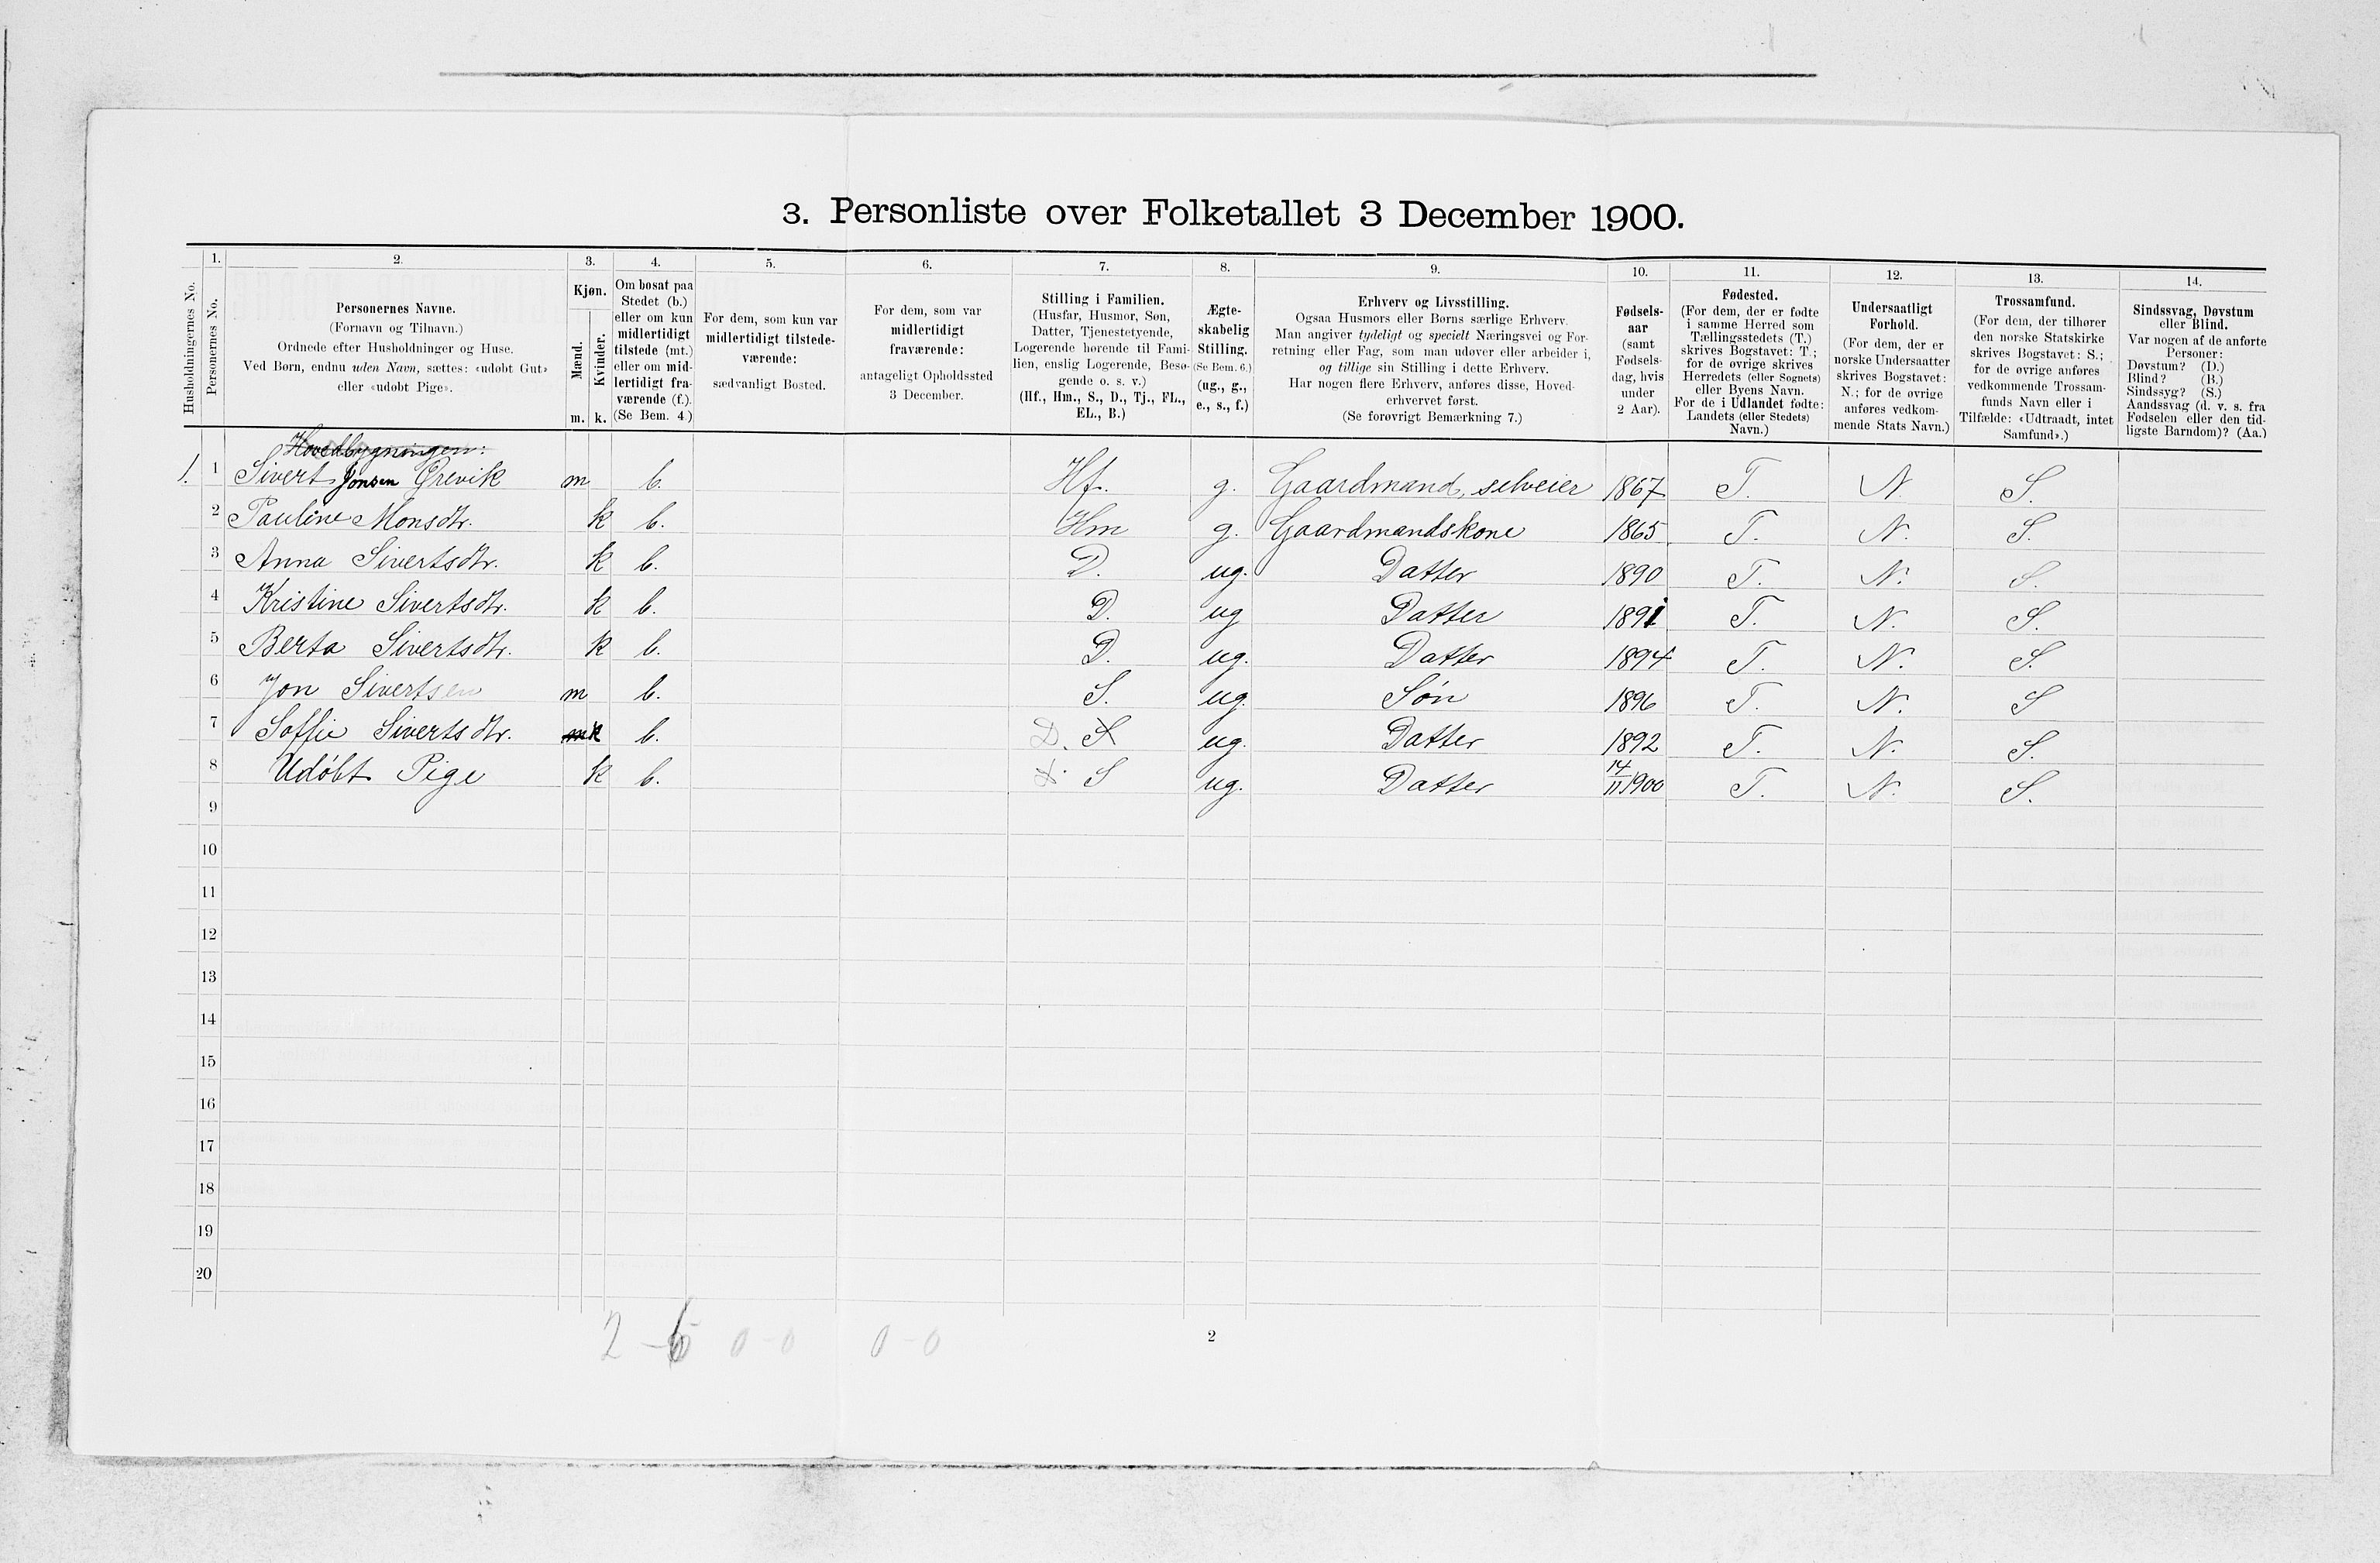 3. Personliste over Folketallet 3 December 1900.
Husholdningernes No.
1.
Personernes No.
2.
Personernes Navne.
(Fornavn og Tilnavn.)
Ordnede efter Husholdninger og Huse.
Ved Børn, endnu uden Navn, sættes: «udøbt Gut»
eller «udøbt Pige».
3.
Kjøn.
Mænd.
Kvinder.
m. k.
4.
Om bosat paa
Stedet (b.)
eller om kun
midlertidigt
tilstede (mt.)
eller om mid-
lertidigt fra-
værende (f.).
(Se Bem. 4.)
5.
For dem, som kun var
midlertidigt tilstede-
værende:
sædvanligt Bosted.
6.
For dem, som var
midlertidigt
fraværende:
antageligt Opholdssted
3 December.
7.
Stilling i Familien.
(Husfar, Husmor, Søn,
Datter, Tjenestetyende,
Logerende hørende til Fami-
lien, enslig Logerende, Besø-
gende o. s. v.)
(Hf., Hm., S., D., Tj., FL.,
EL., B.)
8.
Ægte-
skabelig
Stilling.
(Se Bem. 6.)
(ug., g.,
e., s., f.)
9.
Erhverv og Livsstilling.
Ogsaa Husmors eller Børns særlige Erhverv.
Man angiver tydeligt og specielt Næringsvei og For-
retning eller Fag, som man udøver eller arbeider i,
og tillige sin Stilling i dette Erhverv.
Har nogen flere Erhverv, anføres disse, Hoved-
erhvervet først.
(Se forøvrigt Bemærkning 7.)
10.
Fødsels-
aar
(samt
Fødsels-
dag, hvis
under
2 Aar).
11.
Fødested.
(For dem, der er fødte
i samme Herred som
Tællingsstedets (T.)
skrives Bogstavet: T.;
for de øvrige skrives
Herredets (eller Sognets)
eller Byens Navn.
For de i Udlandet fødte:
Landets (eller Stedets)
Navn.)
12.
Undersaatligt
Forhold.
(For dem, der er
norske Undersaatter
skrives Bogstavet:
N.; for de øvrige
anføres vedkom-
mende Stats Navn.)
13.
Trossamfund.
(For dem, der tilhører
den norske Statskirke
skrives Bogstavet: S.;
for de øvrige anføres
vedkommende Trossam-
funds Navn eller i
Tilfælde: «Udtraadt, intet
Samfund».)
14.
Sindssvag, Døvstum
eller Blind.
Var nogen af de anførte
Personer:
Døvstum? (D.)
Blind? (B.)
Sindssyg? (S.)
Aandssvag (d. v. s. fra
Fødselen eller den tid-
ligste Barndom)? (Aa.)
Hovedbygningen:
1. 1 Sivert Jonsen Ørevik m b. Hf. g. Gaardmand, selveier 1867 T. N. S.
2 Pauline Monsdtr. k b. Hm g. Gaardmandskone 1865 T. N. S.
3 Anna Sivertsdtr. k b. D. ug. Datter 1890 T. N. S.
4 Kristine Sivertsdtr. k b. D. ug Datter 1891 T. N. S.
5 Berta Sivertsdtr. k b. D. ug. Datter 1894 T. N. S.
6 Jon Sivertsen m b. S. ug. Søn 1896 T. N. S
7 Soffie Sivertsdtr. m k b. D. S ug. Datter 1892 T. N. S.
8 Udøbt Pige k b. D. S ug. Datter 14/11 1900 T. N. S.
9
10
11
12
13
14
15
16
17
18
19
20
2 - 6 0 - 0 0 - 0
2